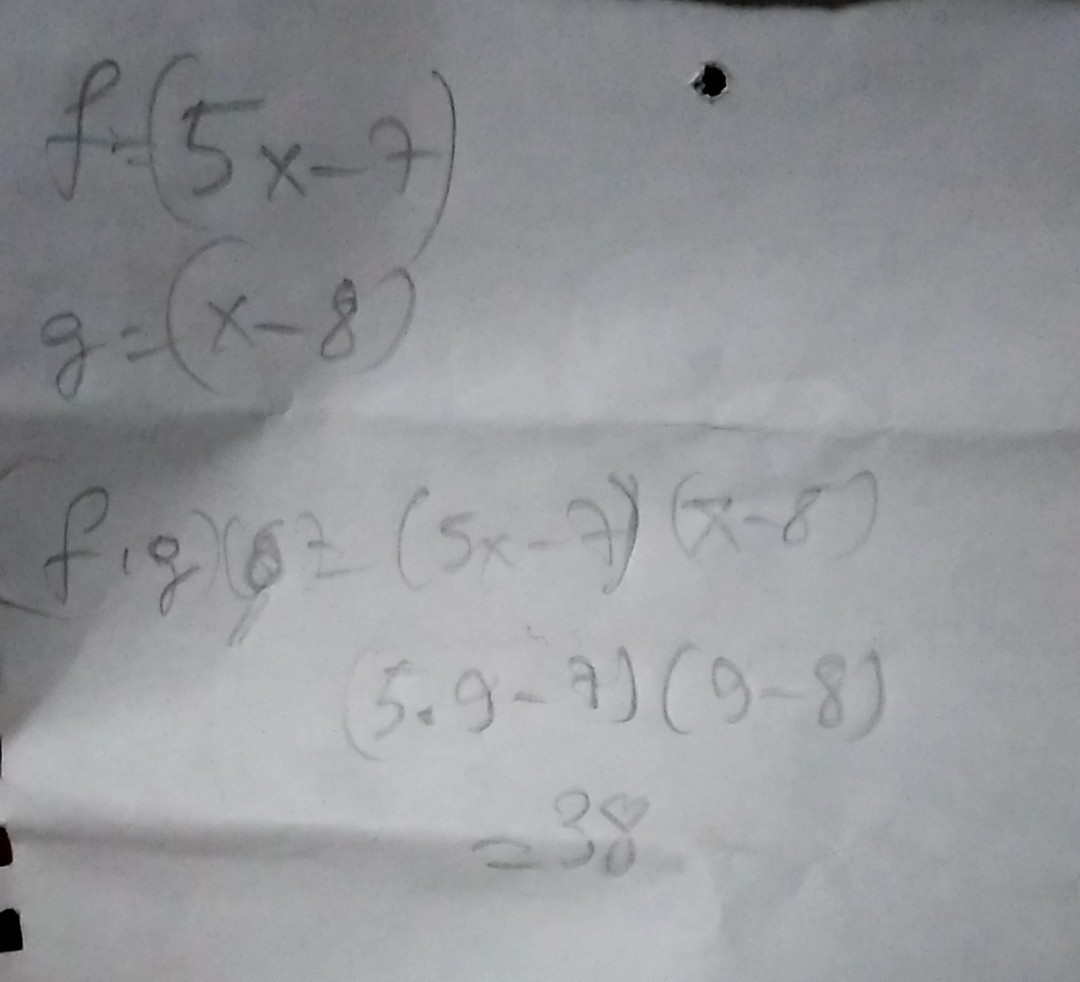 f=(5x-7)
g=(x-8)
(f.g)()= (5x-7)(x-8)
(5.9-7)(9-8)
=38